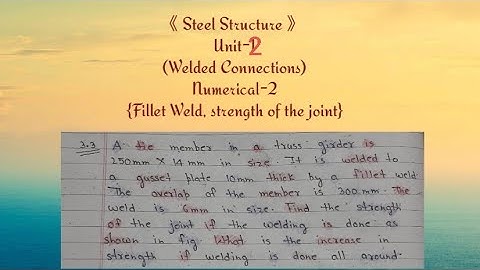 《 Steel Structure 》
Unit-2
(Welded Connections)
Numerical-2
{Fillet Weld, strength of the joint}
3.3 A tie member in a truss girder is
250mm X 14 mm in size. It is welded to
a gusset plate 10mm thick by a fillet weld
The overlap of the member is 300mm. The
weld is 6mm in size. Find the strength
of the joint if the welding is done as
shown in fig. What is the increase in
strength if welding is done all around.